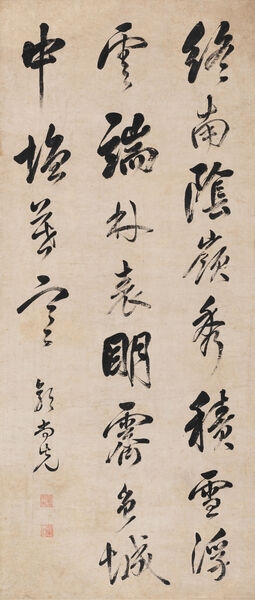 終南陰嶺秀積雪浮
雲端林表明霽色城
中增暮寒
郭尚先